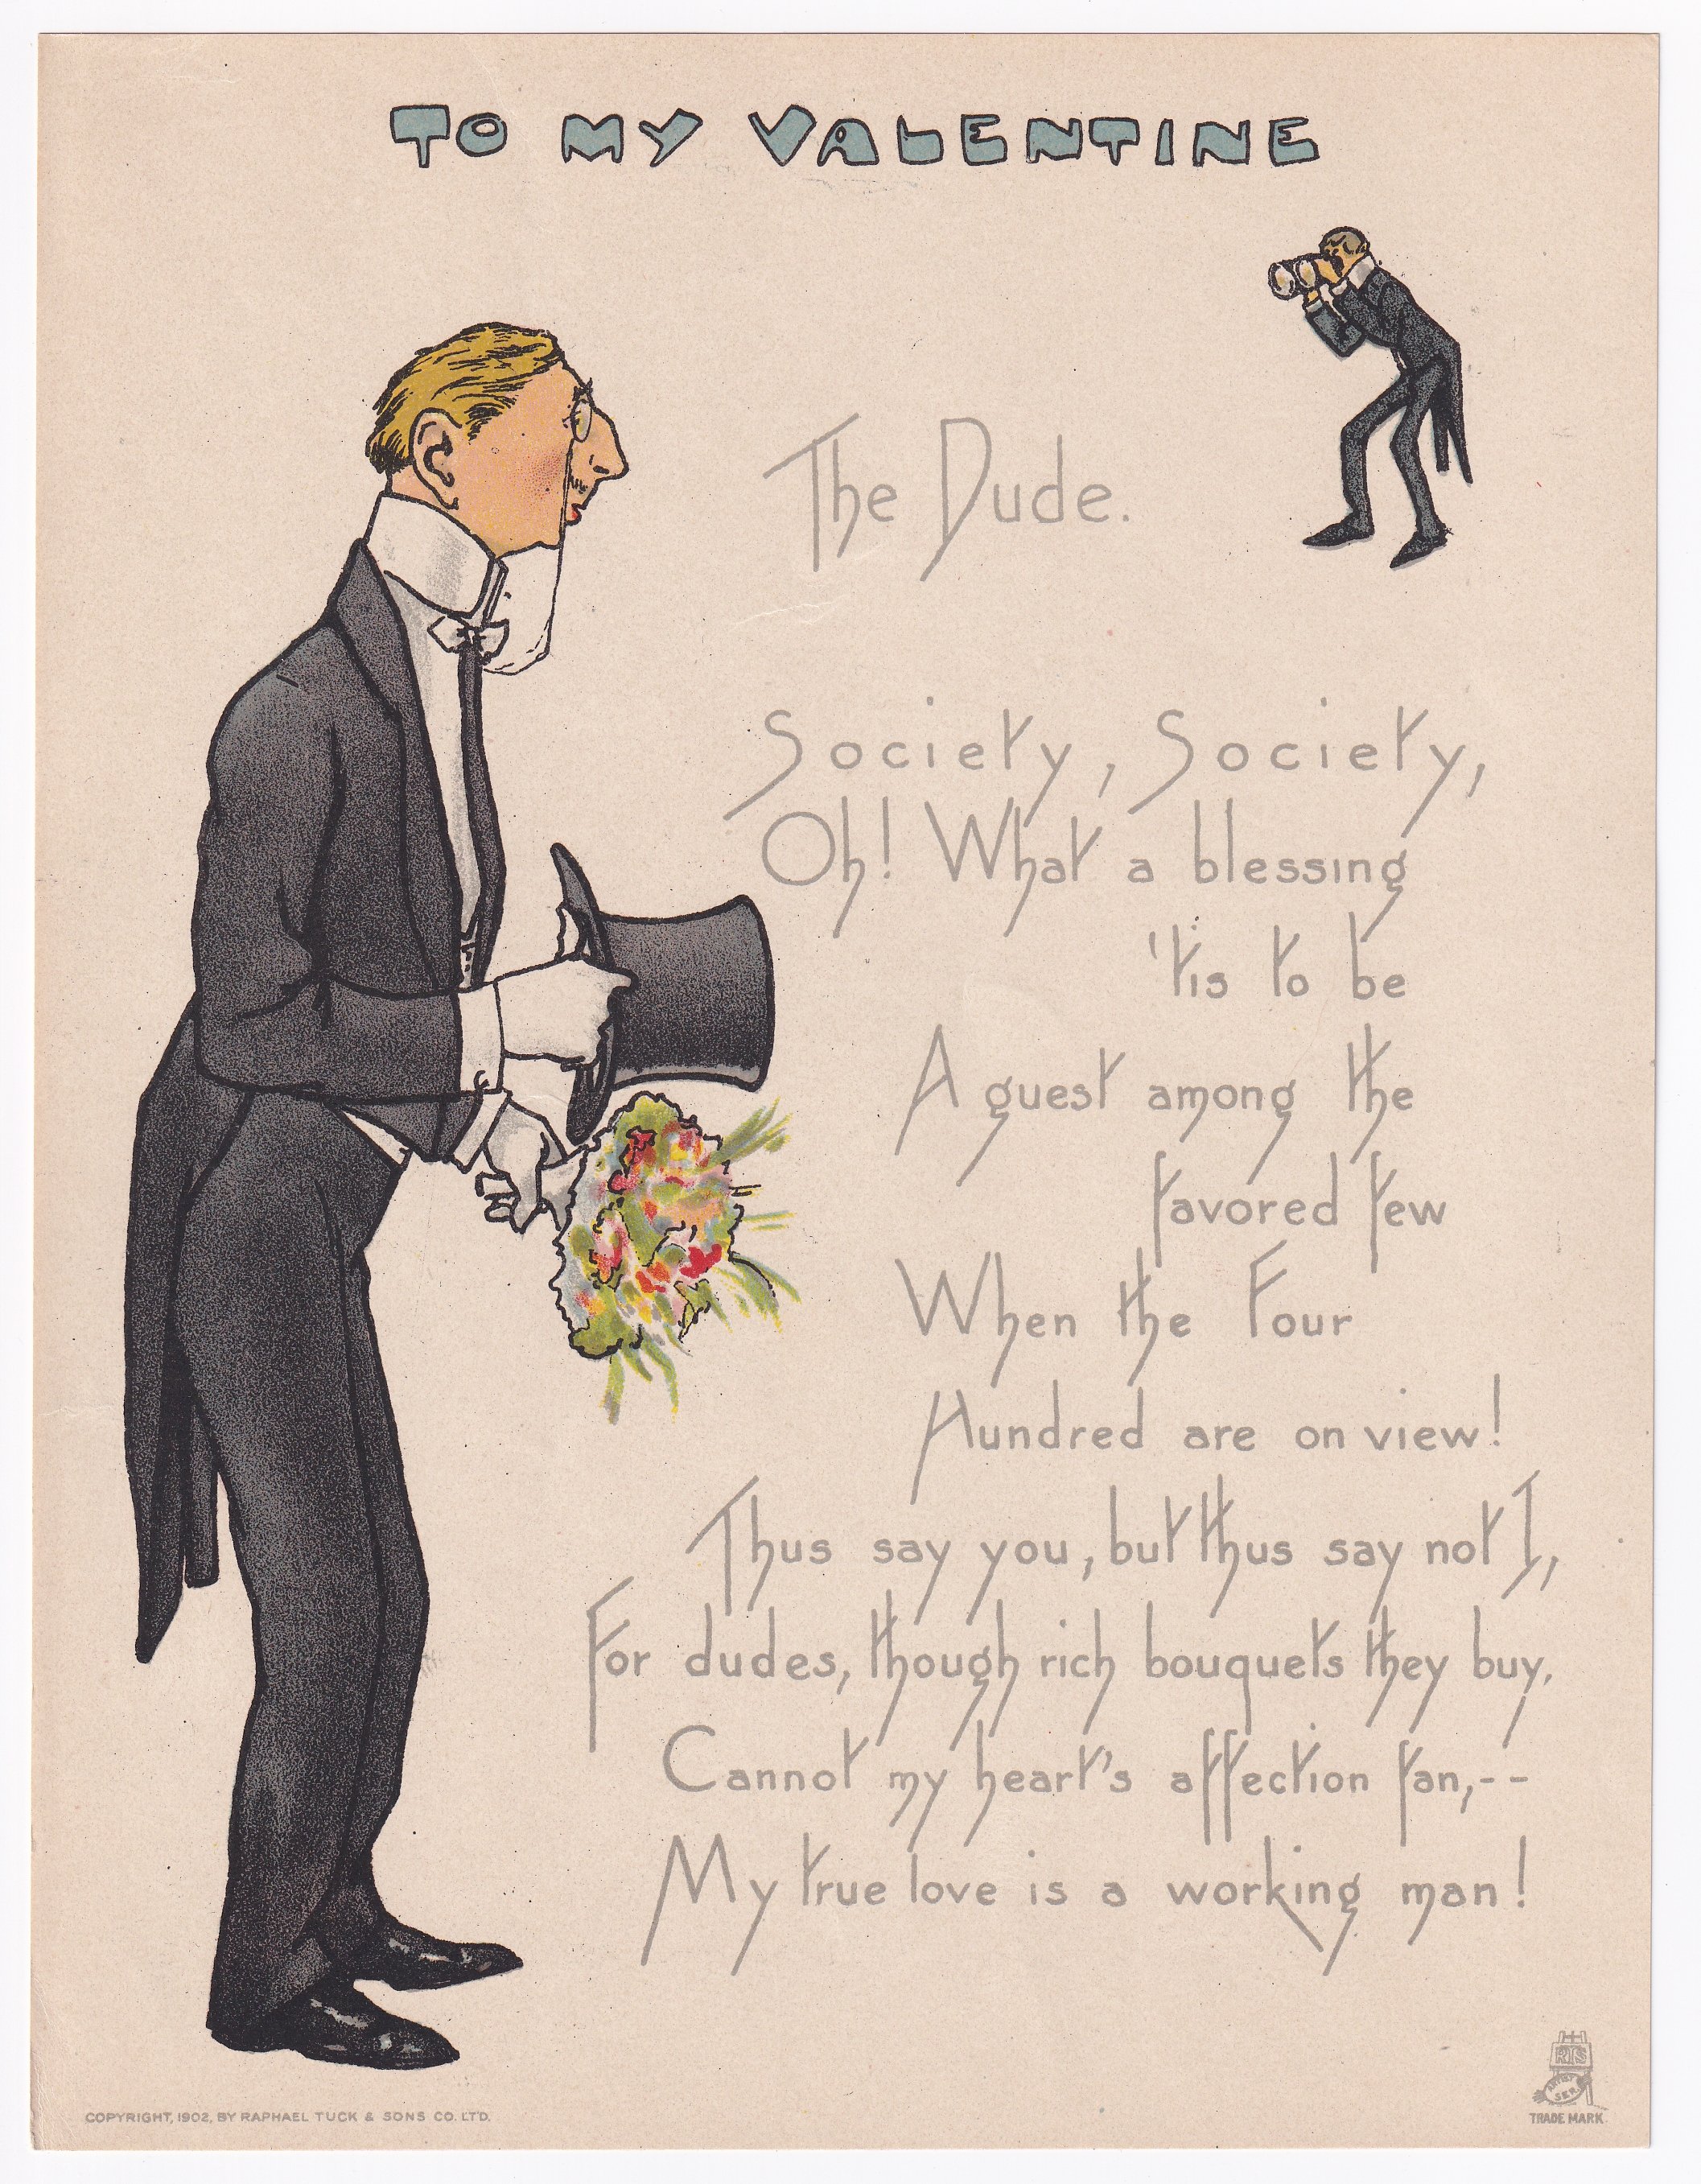 TO MY VALENTINE
The Dude.
Society, Society,
Oh! What a blessing
'tis to be
A guest among the
favored few
When the Four
Hundred are on view!
Thus say you, but thus say not I,
For dudes, though rich bouquets they buy,
Cannot my heart's affection fan,--
My true love is a working man!
RTS
ARTISTIC
SER.
TRADE MARK.
COPYRIGHT, 1902, BY RAPHAEL TUCK & SONS CO. LT'D.